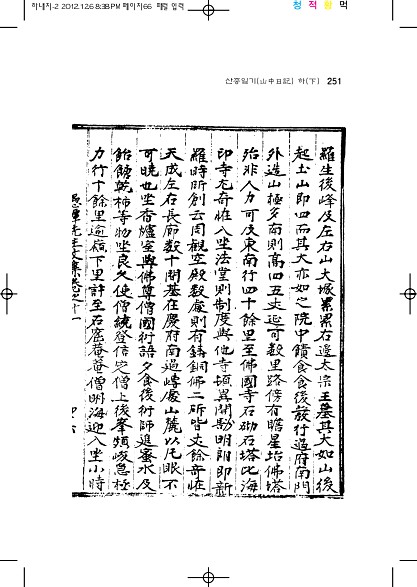 하내지-2 2012.12.6 8:38 PM 페이지66 패럴 입력
청 적 황 먹
산중일기(山中日記) 하(下) 251
羅生後峰及左右山大塚累累石邊太宗王墓其大如山後
起土山卽四而其大亦如之院中饋食食後發行過府南門
外造山極多南則高四五丈延可數里路傍有瞻星坮佛塔
殆非人力可及東南行四十餘里至佛國寺石砌石塔比海
印寺尤奇恠入坐法堂則制度與他寺頓異開勘明朗卽新
羅時所創云周觀空殿數處則有鑄銅佛二所皆丈餘奇恠
天成左右長廊數十間基在慶府南過嶂處山麓以凡眼不
可曉也坐香爐室與佛尊僧國衍語夕食後衍師進蜜水及
飴餹乾柿等物坐良久使僧統登信定僧上後峯頬峻急極
力行十餘里逾嶺下里許至石窟菴菴僧明海迎入坐小時
愚潭先生文集卷之十一